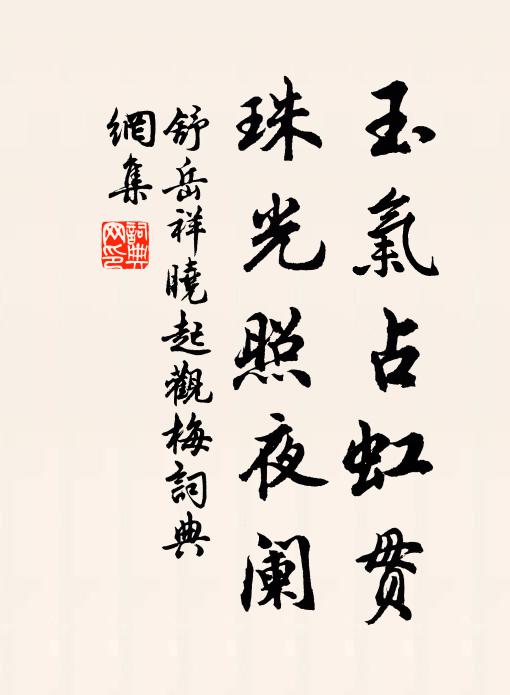 玉氣占虹貫
珠光照夜阑
舒岳祥曉起觀梅詞典
網集
詞典网印